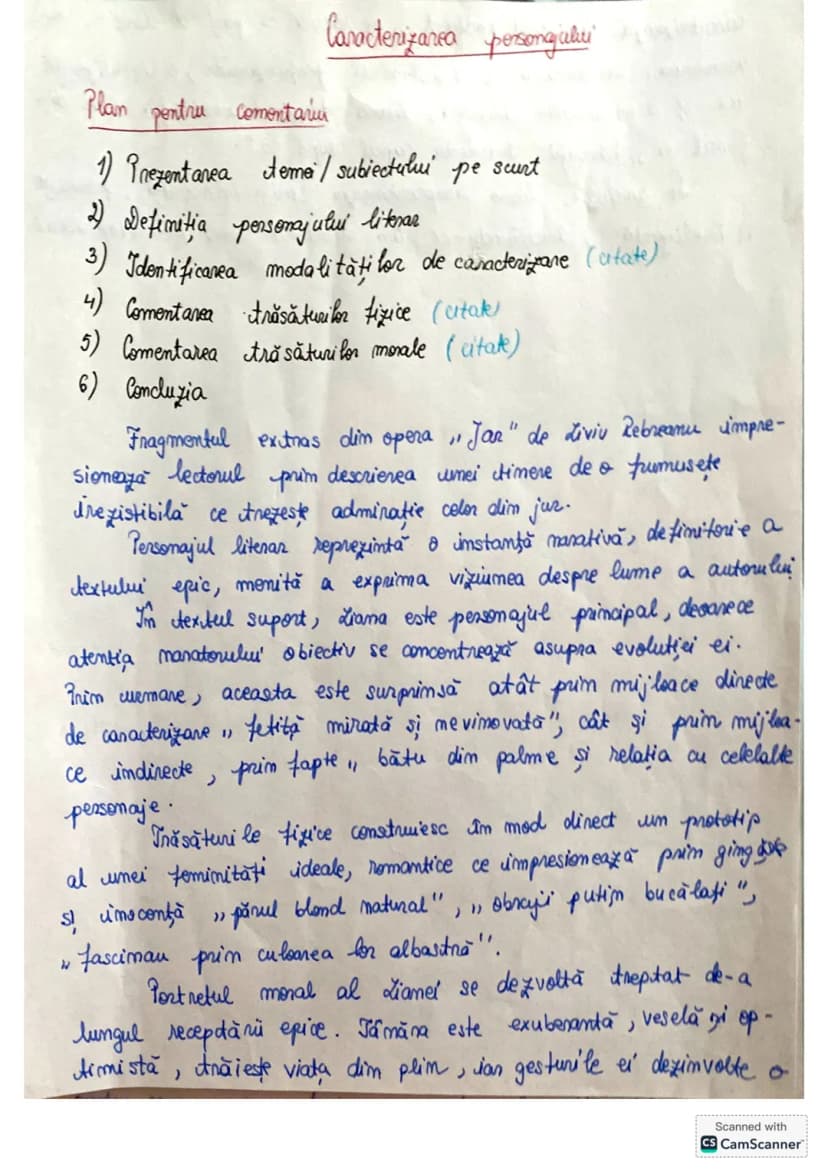 Caracterizarea personajului
Plan pentru comentariu
1) Prezentarea temei / subiectului pe scurt
2) Definiția personajului literar
3) Identificarea modalităților de caracterizare (citate)
4) Comentarea trăsăturilor fizice (citate)
5) Comentarea trăsăturilor morale (citate)
6) Concluzia
Fragmentul extras din opera „Jar" de Liviu Rebreanu impre-
sionează lectorul prin descrierea unei tinere de o frumusețe
irezistibilă ce trezește admirație celor din jur.
Personajul literar reprezintă o instanță narativă, definitorie a
textului epic, menită a exprima viziunea despre lume a autorului
În textul suport, Liana este personajul principal, deoarece
atenția naratorului obiectiv se concentrează asupra evoluției ei.
Prin urmare, aceasta este surprinsă atât prin mijloace directe
de caracterizare „fetiță mirată și nevinovată", cât și prin mijloa-
ce indirecte, prin fapte „bătu din palme și relația cu celelalte
personaje.
Trăsăturile fizice construiesc în mod direct un prototip
al unei feminități ideale, romantice ce impresionează prin
și inocență „părul blond natural", „obrajii puțin bucălați",
„fascinau prin culoarea lor albastră".
Portretul moral al Lianei se dezvoltă treptat de-a
lungul receptării epice. Tânăra este exuberantă, veselă și op-
timistă, trăiește viața din plin, iar gesturile ei dezinvolte o
Scanned with
CS CamScanner